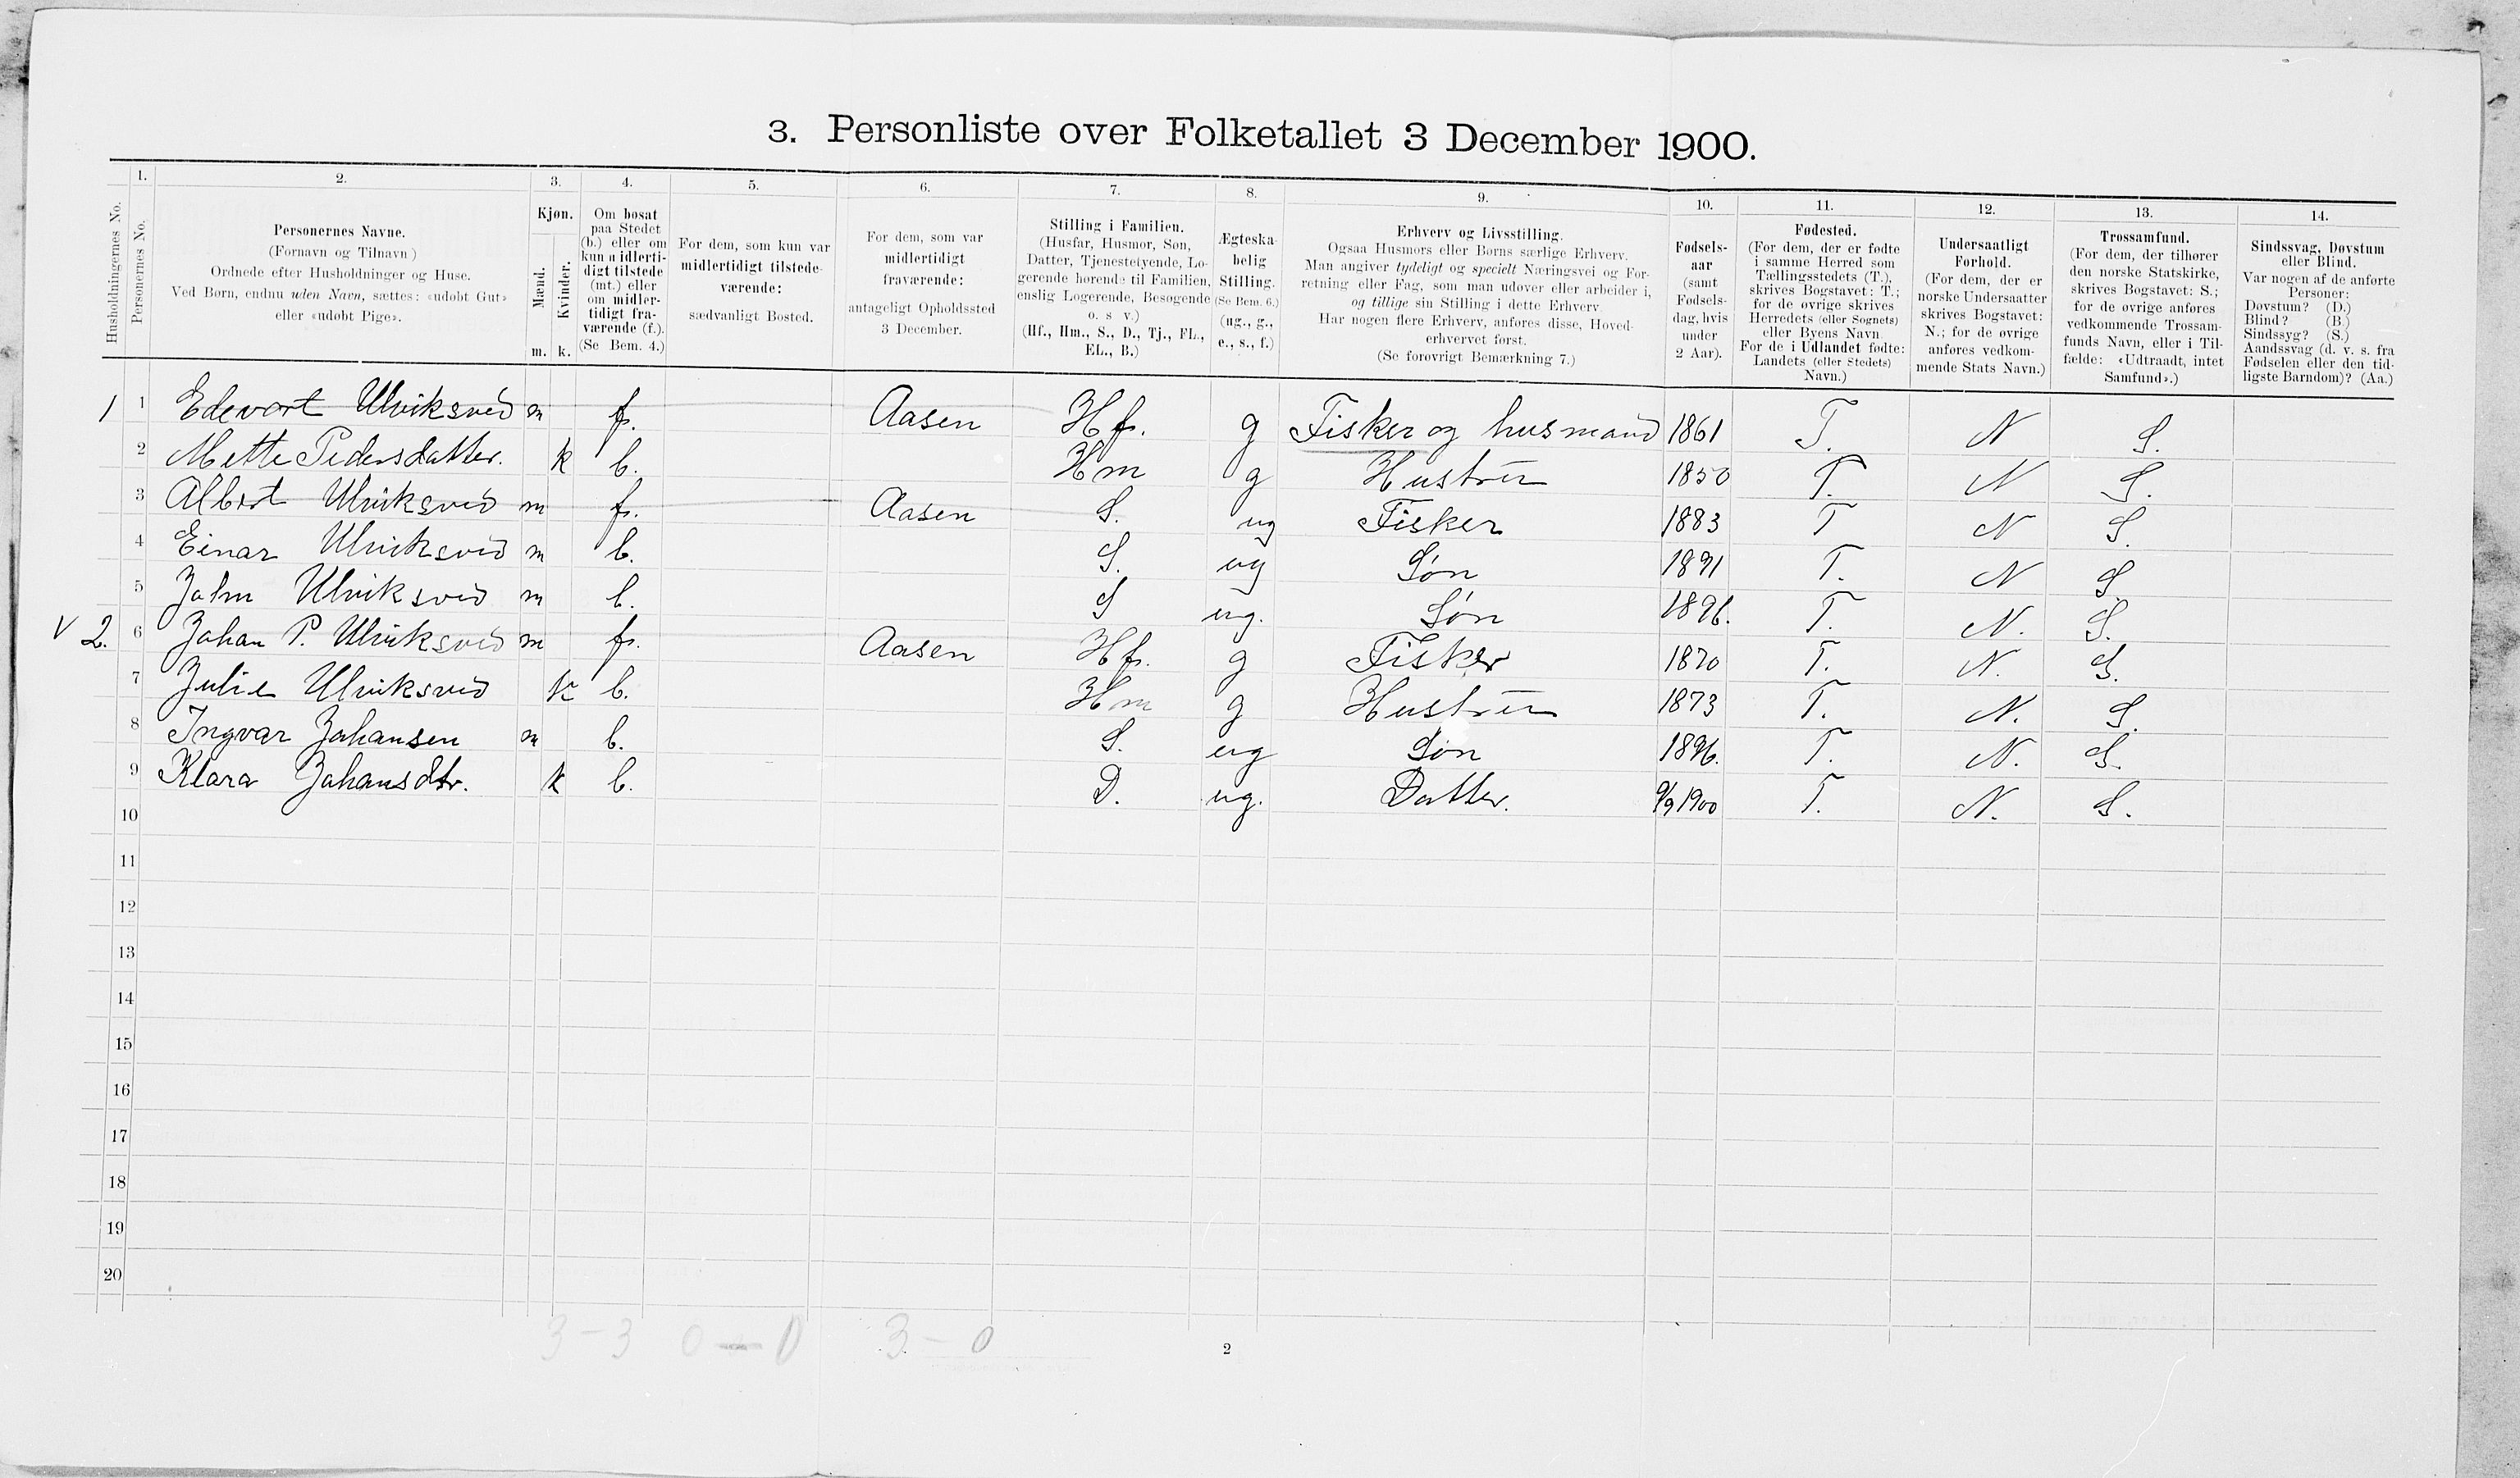 3. Personliste over Folketallet 3 December 1900.
1. 2. 3. 4. 5. 6. 7. 8. 9. 10. 11. 12. 13. 14.
Husholdningernes No.
Personernes No.
Personernes Navne.
(Fornavn og Tilnavn)
Ordnede efter Husholdninger og Huse.
Ved Børn, endnu uden Navn, sættes: «udøbt Gut»
eller «udøbt Pige».
Kjøn.
Mænd.
Kvinder.
m. k.
Om bosat
paa Stedet
(b.) eller om
kun midlerti-
digt tilstede
(mt.) eller
om midler-
tidigt fra-
værende (f.).
(Se Bem. 4.)
For dem, som kun var
midlertidigt tilstede-
værende:
sædvanligt Bosted.
For dem, som var
midlertidigt
fraværende:
antageligt Opholdssted
3 December.
Stilling i Familien.
(Husfar, Husmor, Søn,
Datter, Tjenestetyende, Lo-
gerende hørende til Familien,
enslig Logerende, Besøgende
o. s v.)
(Hf., Hm., S., D., Tj., FL.,
EL., B.)
Ægteska-
belig
Stilling.
(Se Bem. 6.)
(ug., g.,
e., s., f.)
Erhverv og Livsstilling.
Ogsaa Husmors eller Børns særlige Erhverv.
Man angiver tydeligt og specielt Næringsvei og For-
retning eller Fag, som man udøver eller arbeider i,
og tillige sin Stilling i dette Erhverv.
Har nogen flere Erhverv, anføres disse, Hoved-
erhvervet først.
(Se forøvrigt Bemærkning 7.)
Fødsels-
aar
(samt
Fødsels-
dag, hvis
under
2 Aar).
Fødested.
(For dem, der er fødte
i samme Herred som
Tællingsstedets (T.),
skrives Bogstavet: T.;
for de øvrige skrives
Herredets (eller Sognets)
eller Byens Navn.
For de i Udlandet fødte:
Landets (eller Stedets)
Navn.)
Undersaatligt
Forhold.
(For dem, der er
norske Undersaatter
skrives Bogstavet:
N.; for de øvrige
anføres vedkom-
mende Stats Navn.)
Trossamfund.
(For dem, der tilhører
den norske Statskirke,
skrives Bogstavet: S.;
for de øvrige anføres
vedkommende Trossam-
funds Navn, eller i Til-
fælde: «Udtraadt, intet
Samfund».)
Sindssvag, Døvstum
eller Blind.
Var nogen af de anførte
Personer:
Døvstum? (D.)
Blind? (B.)
Sindssyg? (S.)
Aandssvag (d. v. s. fra
Fødselen eller den tid-
ligste Barndom)? (Aa.)
1 1 Edevart Ulviksveid m f. Aasen Hf. g Fisker og husmand 1861 T. N S.
2 Mette Pedersdatter. k b. Hm g Hustru 1850 T. N S.
3 Albert Ulviksveid m f. Aasen S. ug Fisker 1883 T N S.
4 Einar Ulviksveid m b. S. ug Søn 1891 T. N S.
5 John Ulviksveid m b. S ug. Søn 1896. T. N. S.
V 2. 6 Johan P. Ulviksveid m f. Aasen Hf. g Fisker 1870 T. N. S.
7 Julie Ulviksveid k b. Hm g Hustru 1873 T. N. S.
8 Ingvar Johansen m b. S. ug Søn 1896. T. N. S.
9 Klara Johansdtr. k b. D. ug. Datter. 9/9 1900 T. N. S.
10
11
12
13
14
15
16
17
18
19
20
3 - 3 0 - 0 3 - 0
2